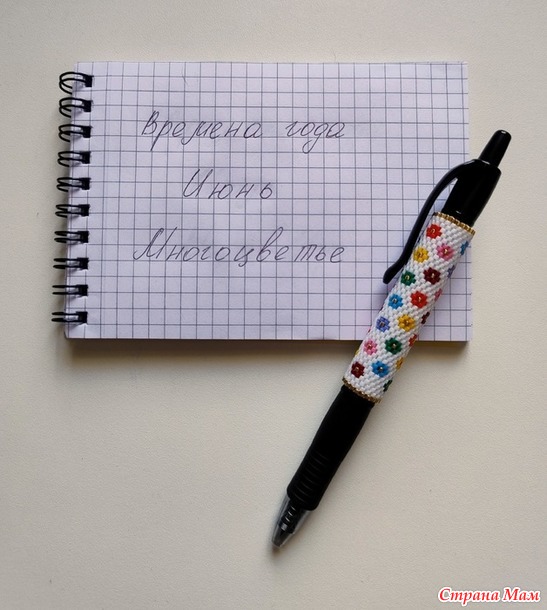 Времена года
Июнь
Многоцветье
Страна Мам